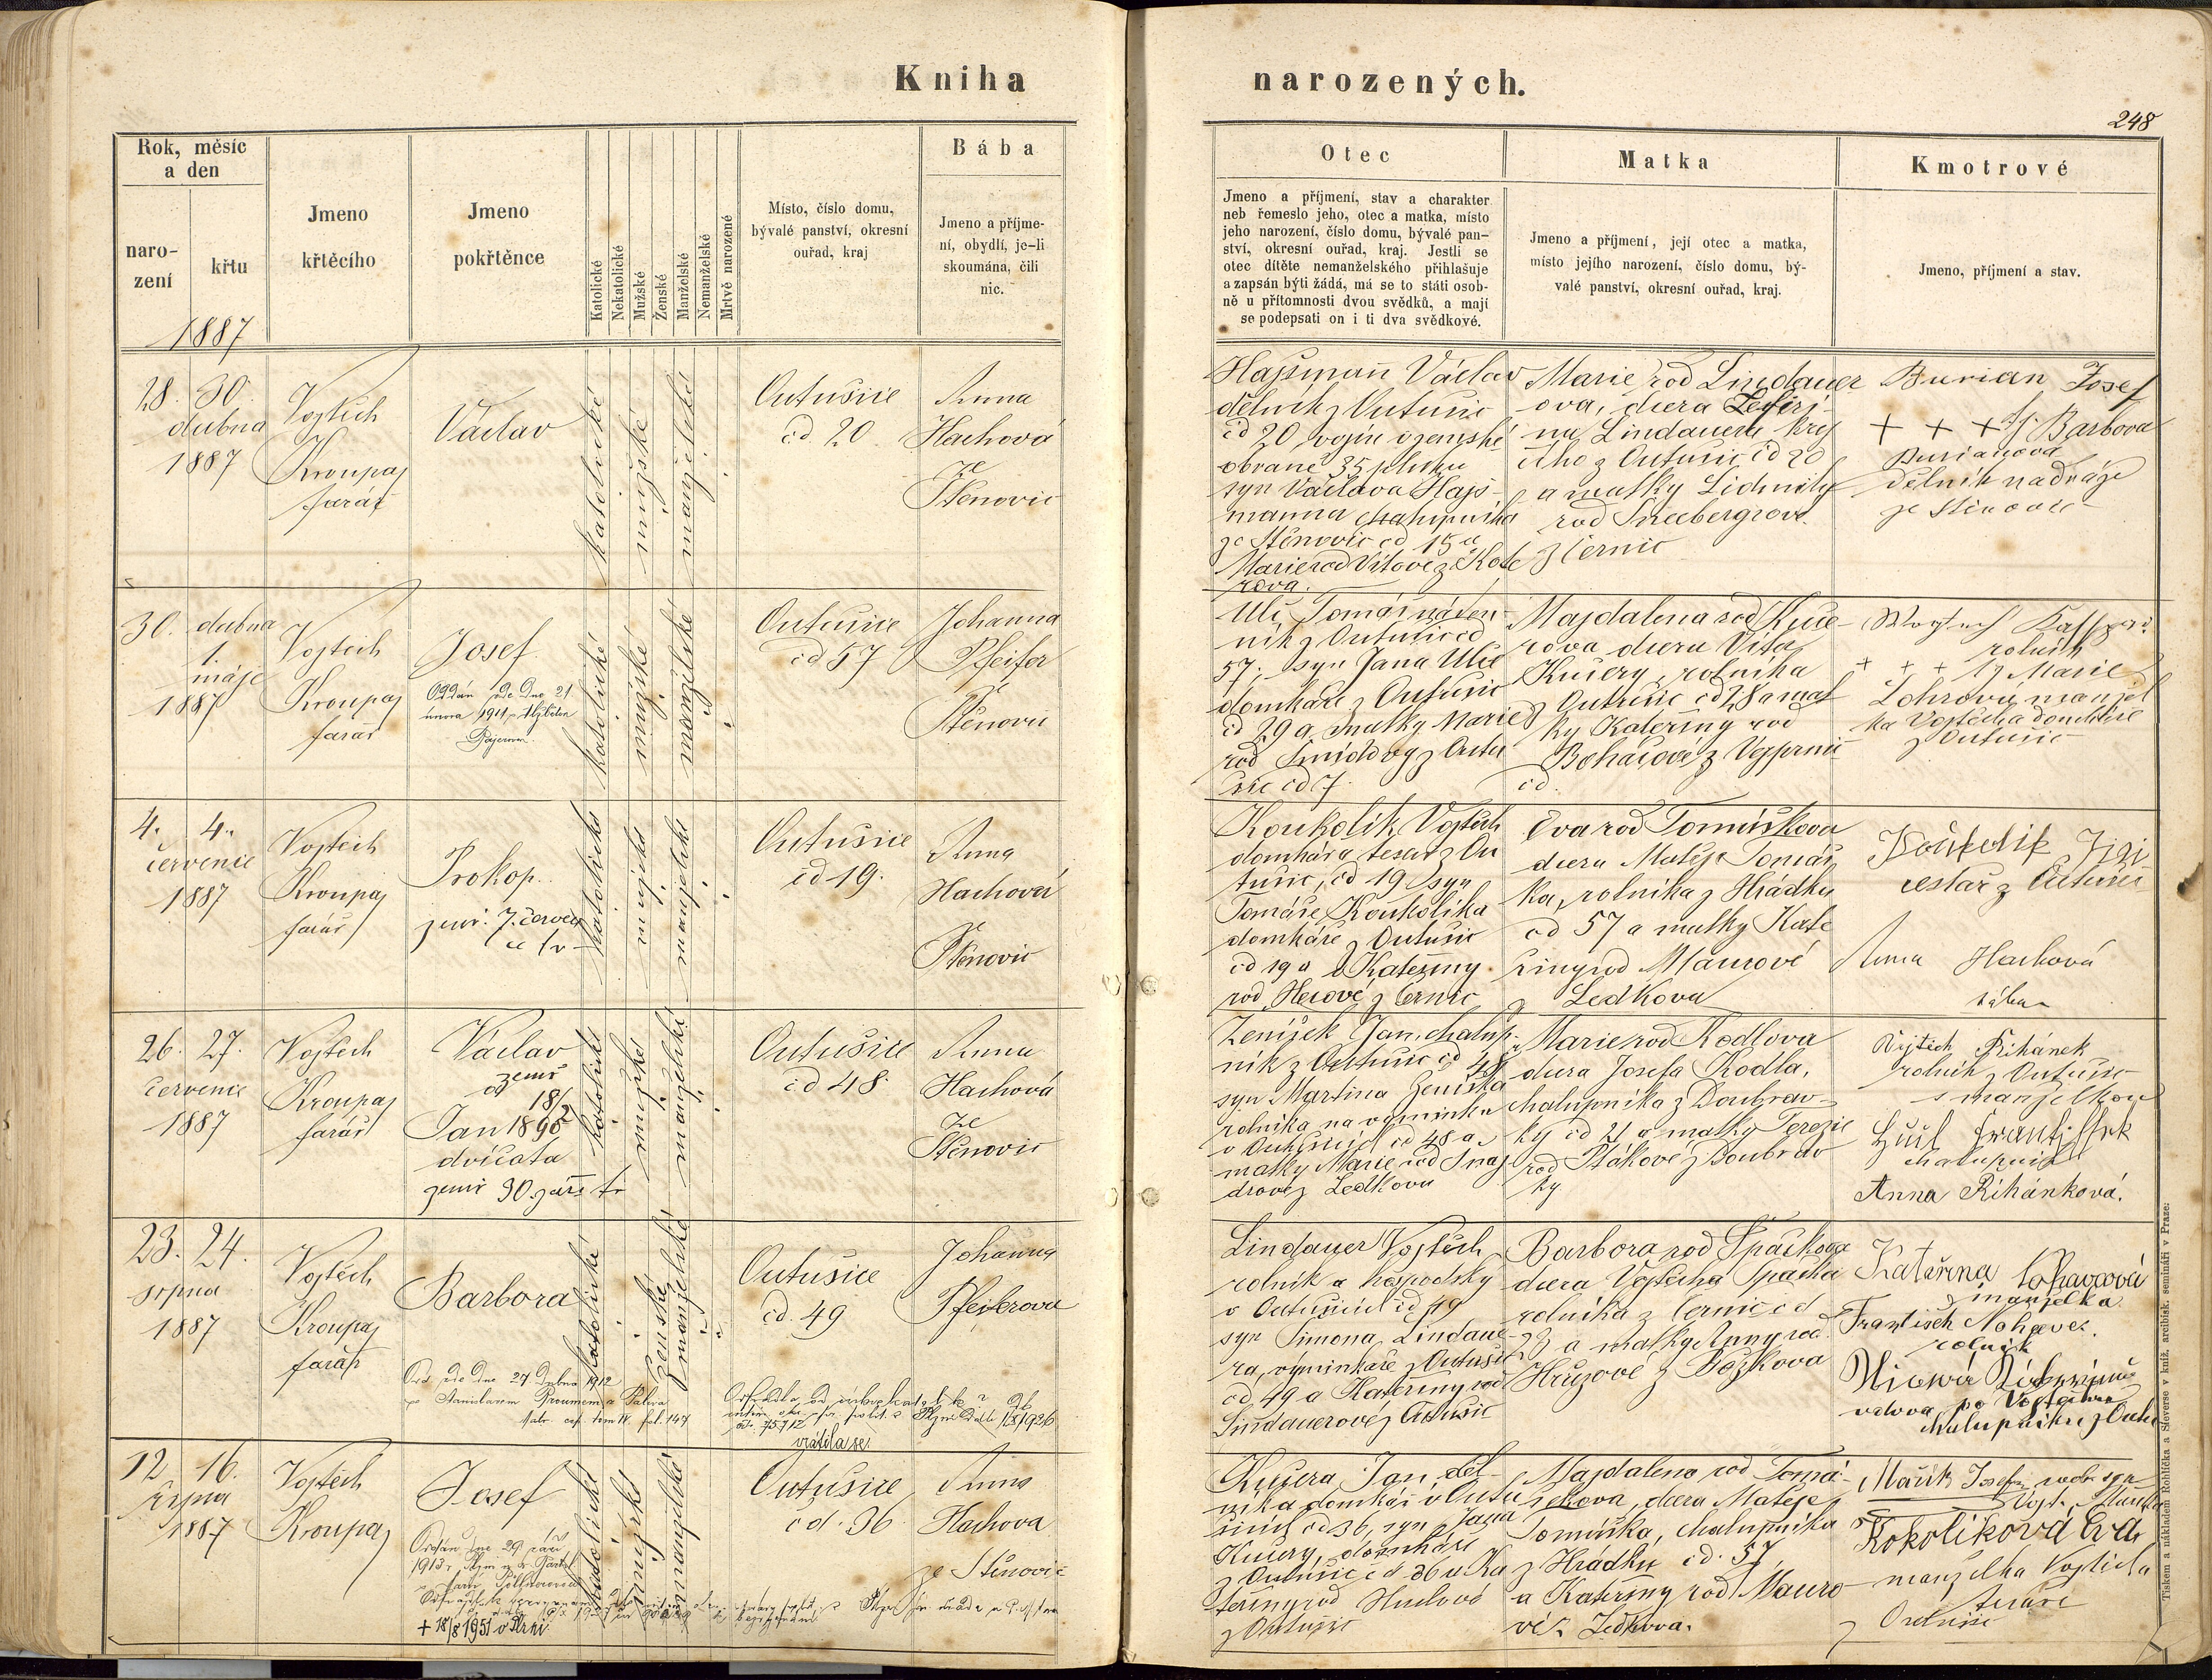 Kniha narozených.
248
Rok, měsíc
a den
naro-
zení
křtu
1887
Jmeno
křtěcího
Jmeno
pokřtěnce
Katolické
Nekatolické
Mužské
Ženské
Manželské
Nemanželské
Mrtvě narozené
Místo, číslo domu,
bývalé panství, okresní
ouřad, kraj
Bába
Jmeno a příjme-
ní, obydlí, je-li
skoumána, čili
nic.
Otec
Jmeno a příjmení, stav a charakter
neb řemeslo jeho, otec a matka, místo
jeho narození, číslo domu, bývalé pan-
ství, okresní ouřad, kraj. Jestli se
otec dítěte nemanželského přihlašuje
a zapsán býti žádá, má se to státi osob-
ně u přítomnosti dvou svědků, a mají
se podepsati on i ti dva svědkové.
Matka
Jmeno a příjmení, její otec a matka,
místo jejího narození, číslo domu, bý-
valé panství, okresní ouřad, kraj.
Kmotrové
Jmeno, příjmení a stav.
28. 30.
dubna
1887
Vojtěch
Kroupa
farář
Václav
katolické
mužské
manželské
Outušice
čd 20
Anna
Hachová
ze
Štěnovic
Hajšman Václav
dělník z Outušic
čd 20, vojín zemské
obrany 35 pluku
syn Václava Hajš-
manna chalupníka
ze Štěnovic čd 15 a
Marie rod Vítové z Kote
rova.
Marie rod Lindauer
ova, dcera
na Lindauera krej
čího z Outušic čd 20
a matky Lidmily
rod
z Černic
Burian Josef
+ + + Barbora
Burianova
dělník na dráze
ze Štěnovic
30. dubna
1.
máje
1887
Vojtěch
Kroupa
farář
Josef
Oddán zde dne 21
února 1911 s Alžbětou
katolické
mužské
manželské
Outušice
čd 57
Johanna
Pfeifer
ze
Štěnovic
Ulč Tomáš
ník z Outušic čd
57, syn Jana Ulče
domkáře z Outušic
čd 29 a matky Marie
rod Šmídovy z Outu
šic čd 7.
Majdalena rod Kuče
rova dcera Víta
Kučery, rolníka
z Outušic čd 28 a mat
ky Kateřiny rod
Boháčové z Vejprnic
čd.
rolník
+ + + Marie
manžel
ka Vojtěcha domkáře
z Outušic
4. 4.
července
1887
Vojtěch
Kroupa
farář
Prokop.
zemř. 7. červen
ce
katolické
mužské
manželské
Outušice
čd 19.
Anna
Hachová
ze
Štěnovic
Koukolík Vojtěch
domkář a tesař z Ou
tušic, čd 19 syn
Tomáše Koukolíka
domkáře z Outušic
čd 19 a Kateřiny
rod Hescové z Černic
Eva rod Tomáškova
dcera Matěje Tomáš
ka, rolníka z Hrádku
čd 57 a matky Kate
řiny rod Maurové
z Ledkova
Koukolík Jiří
cestář z Outušic
Anna Hachová
bába
26. 27.
července
1887
Vojtěch
Kroupa
farář
Václav
zemř
18/2
1895
Jan
dvíčata
zemř 30. září
katolické
mužské
manželské
Outušice
čd 48
Anna
Hachová
ze
Štěnovic
Zeníšek Jan, chalup-
ník z Outušic čd 48
syn Martina Zeníška
rolníka na výminku
v Outušicích čd 48 a
matky Marie rod Šnaj
drové z Ledkova
Marie rod Rodlova
dcera Josefa Rodla,
chalupníka z Doubrav-
ky čd 21 a matky Terezie
rod Ptákové z Doubrav
ky
Vojtěch Řihánek
rolník z Outušic
s manželkou
František
chalupník
Anna Řihánková.
23. 24.
srpna
1887
Vojtěch
Kroupa
farář
Barbora
Odd. zde dne 27 dubna 1912
s Stanislavem
fol. 147
katolické
ženské
manželské
Outušice
čd. 49
Johanna
Pfeiferova
vrátila se
Lindauer Vojtěch
rolník a hospodský
v Outušicích čd 49
syn Šimona Lindaue-
ra, výminkáře z Outušic
čd 49 a Kateřiny rod
Lindauerové z Outušic
Barbora rod Špačkova
dcera Vojtěcha Špačka
rolníka z Černic čd
23 a matky Anny rod
Hrůzové z Božkova
Kateřina
manželka
František
rolník
vdova po Vojtěchu
chalupníku z Outu
12 16.
srpna
1887
Vojtěch
Kroupa
Josef
Oddán dne 29 září
1913
+ 18/8 1951 v Plzni
katolické
mužské
manželské
Outušice
čd. 36
Anna
Hachova
ze Štěnovic
Kučera Jan děl-
níka domkář v Outu
šicích čd 36, syn Jana
Kučery, domkáře
z Outušic čd 36 a Ka
teřiny rod
z Outušic
Majdalena rod Tomá-
škova, dcera Matěje
Tomáška, chalupníka
z Hrádku čd. 57
a Kateřiny rod Mauro
vé z Ledkova.
Mařík Josef
Kokolíková Eva
manželka Vojtěcha
tesaře
z Outušic
Tiskem a nákladem Rohlíčka a Sieverse v kniž. arcibisk. semináři v Praze.